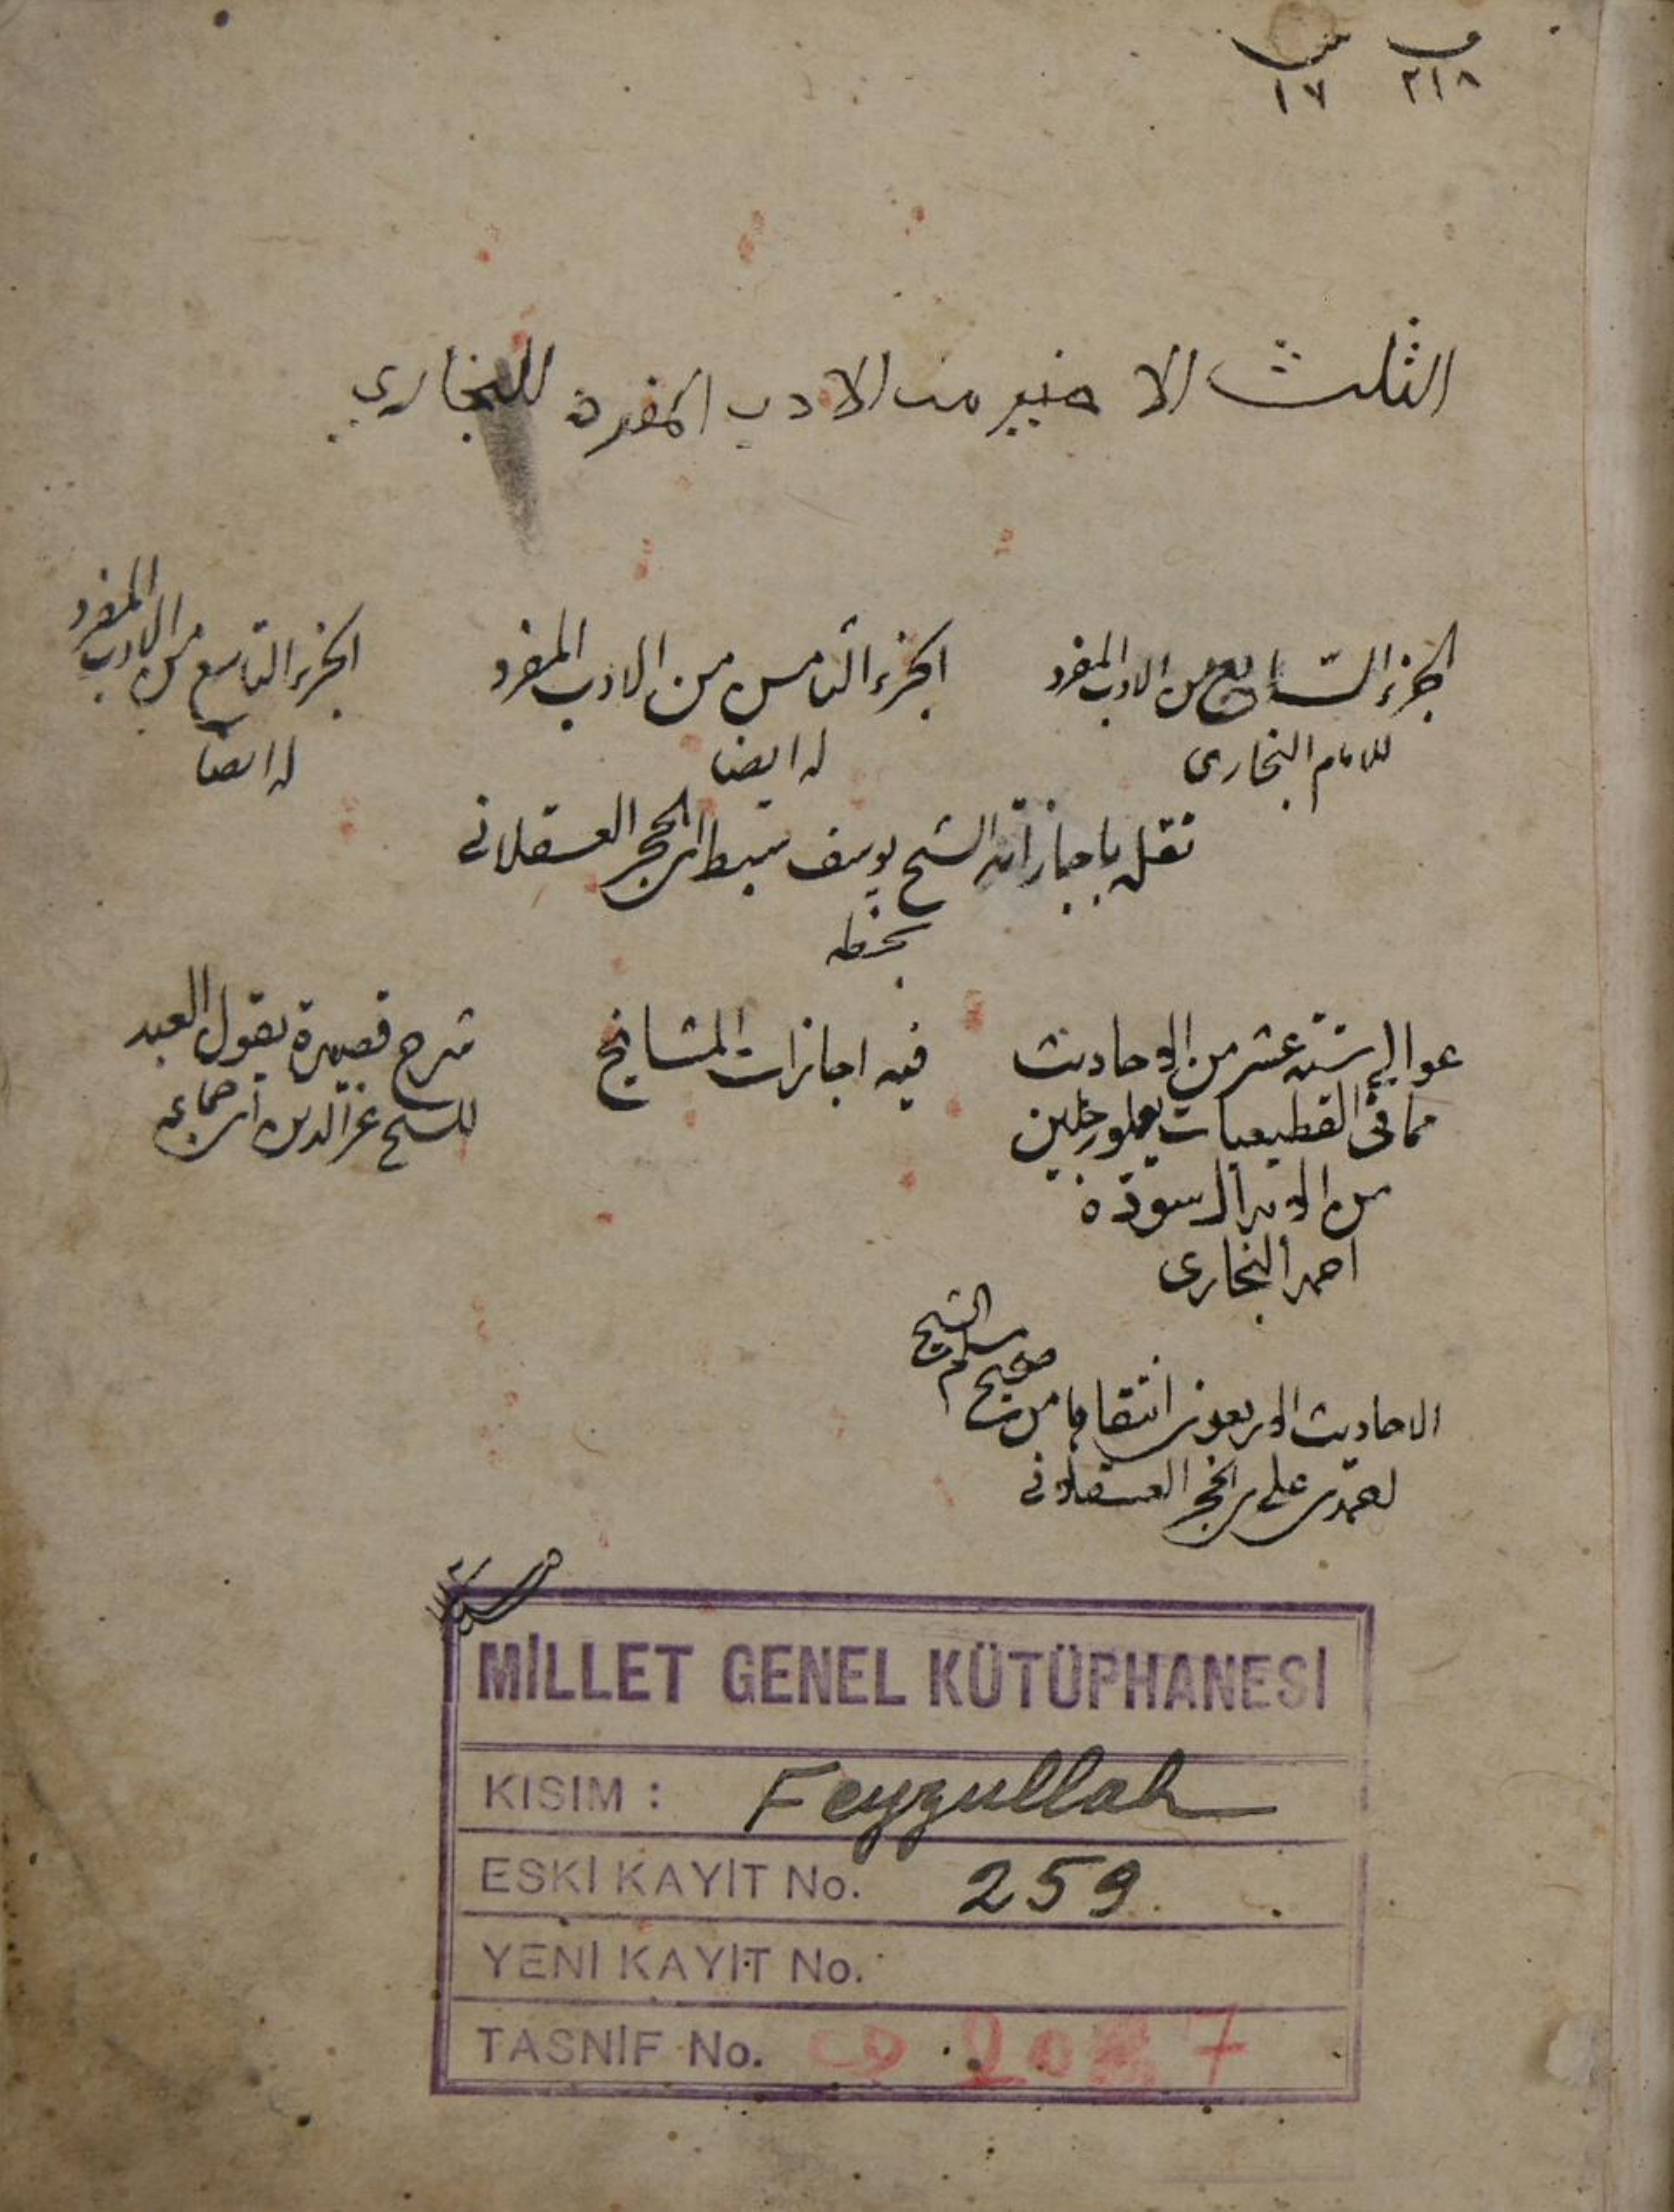 ٢١٨ ١٧
الثلث الاخير من الادب المفرد للبخاري
الجزء السابع من الادب المفرد
للامام البخارى
الجزء الثامن من الادب المفرد
له ايضا
الجزء التاسع من الادب المفرد
له ايضا
نقل باجازاته الشيخ يوسف سبط ابن حجر العسقلانى
بخطه
عوالى ستة عشر من الاحاديث
مما فى القطيعيات يعلو رجلين
احمد البخارى
فيه اجازات المشايخ
شرح قصيدة يقول العبد
للشيخ عز الدين ابن جماعه
الاحاديث الاربعون انتقاها من صحيح مسلم الشيخ
على بن حجر العسقلانى
MİLLET GENEL KÜTÜPHANESİ
KISIM : Feyzullah
ESKİ KAYIT No. 259
YENİ KAYIT No.
TASNİF No.